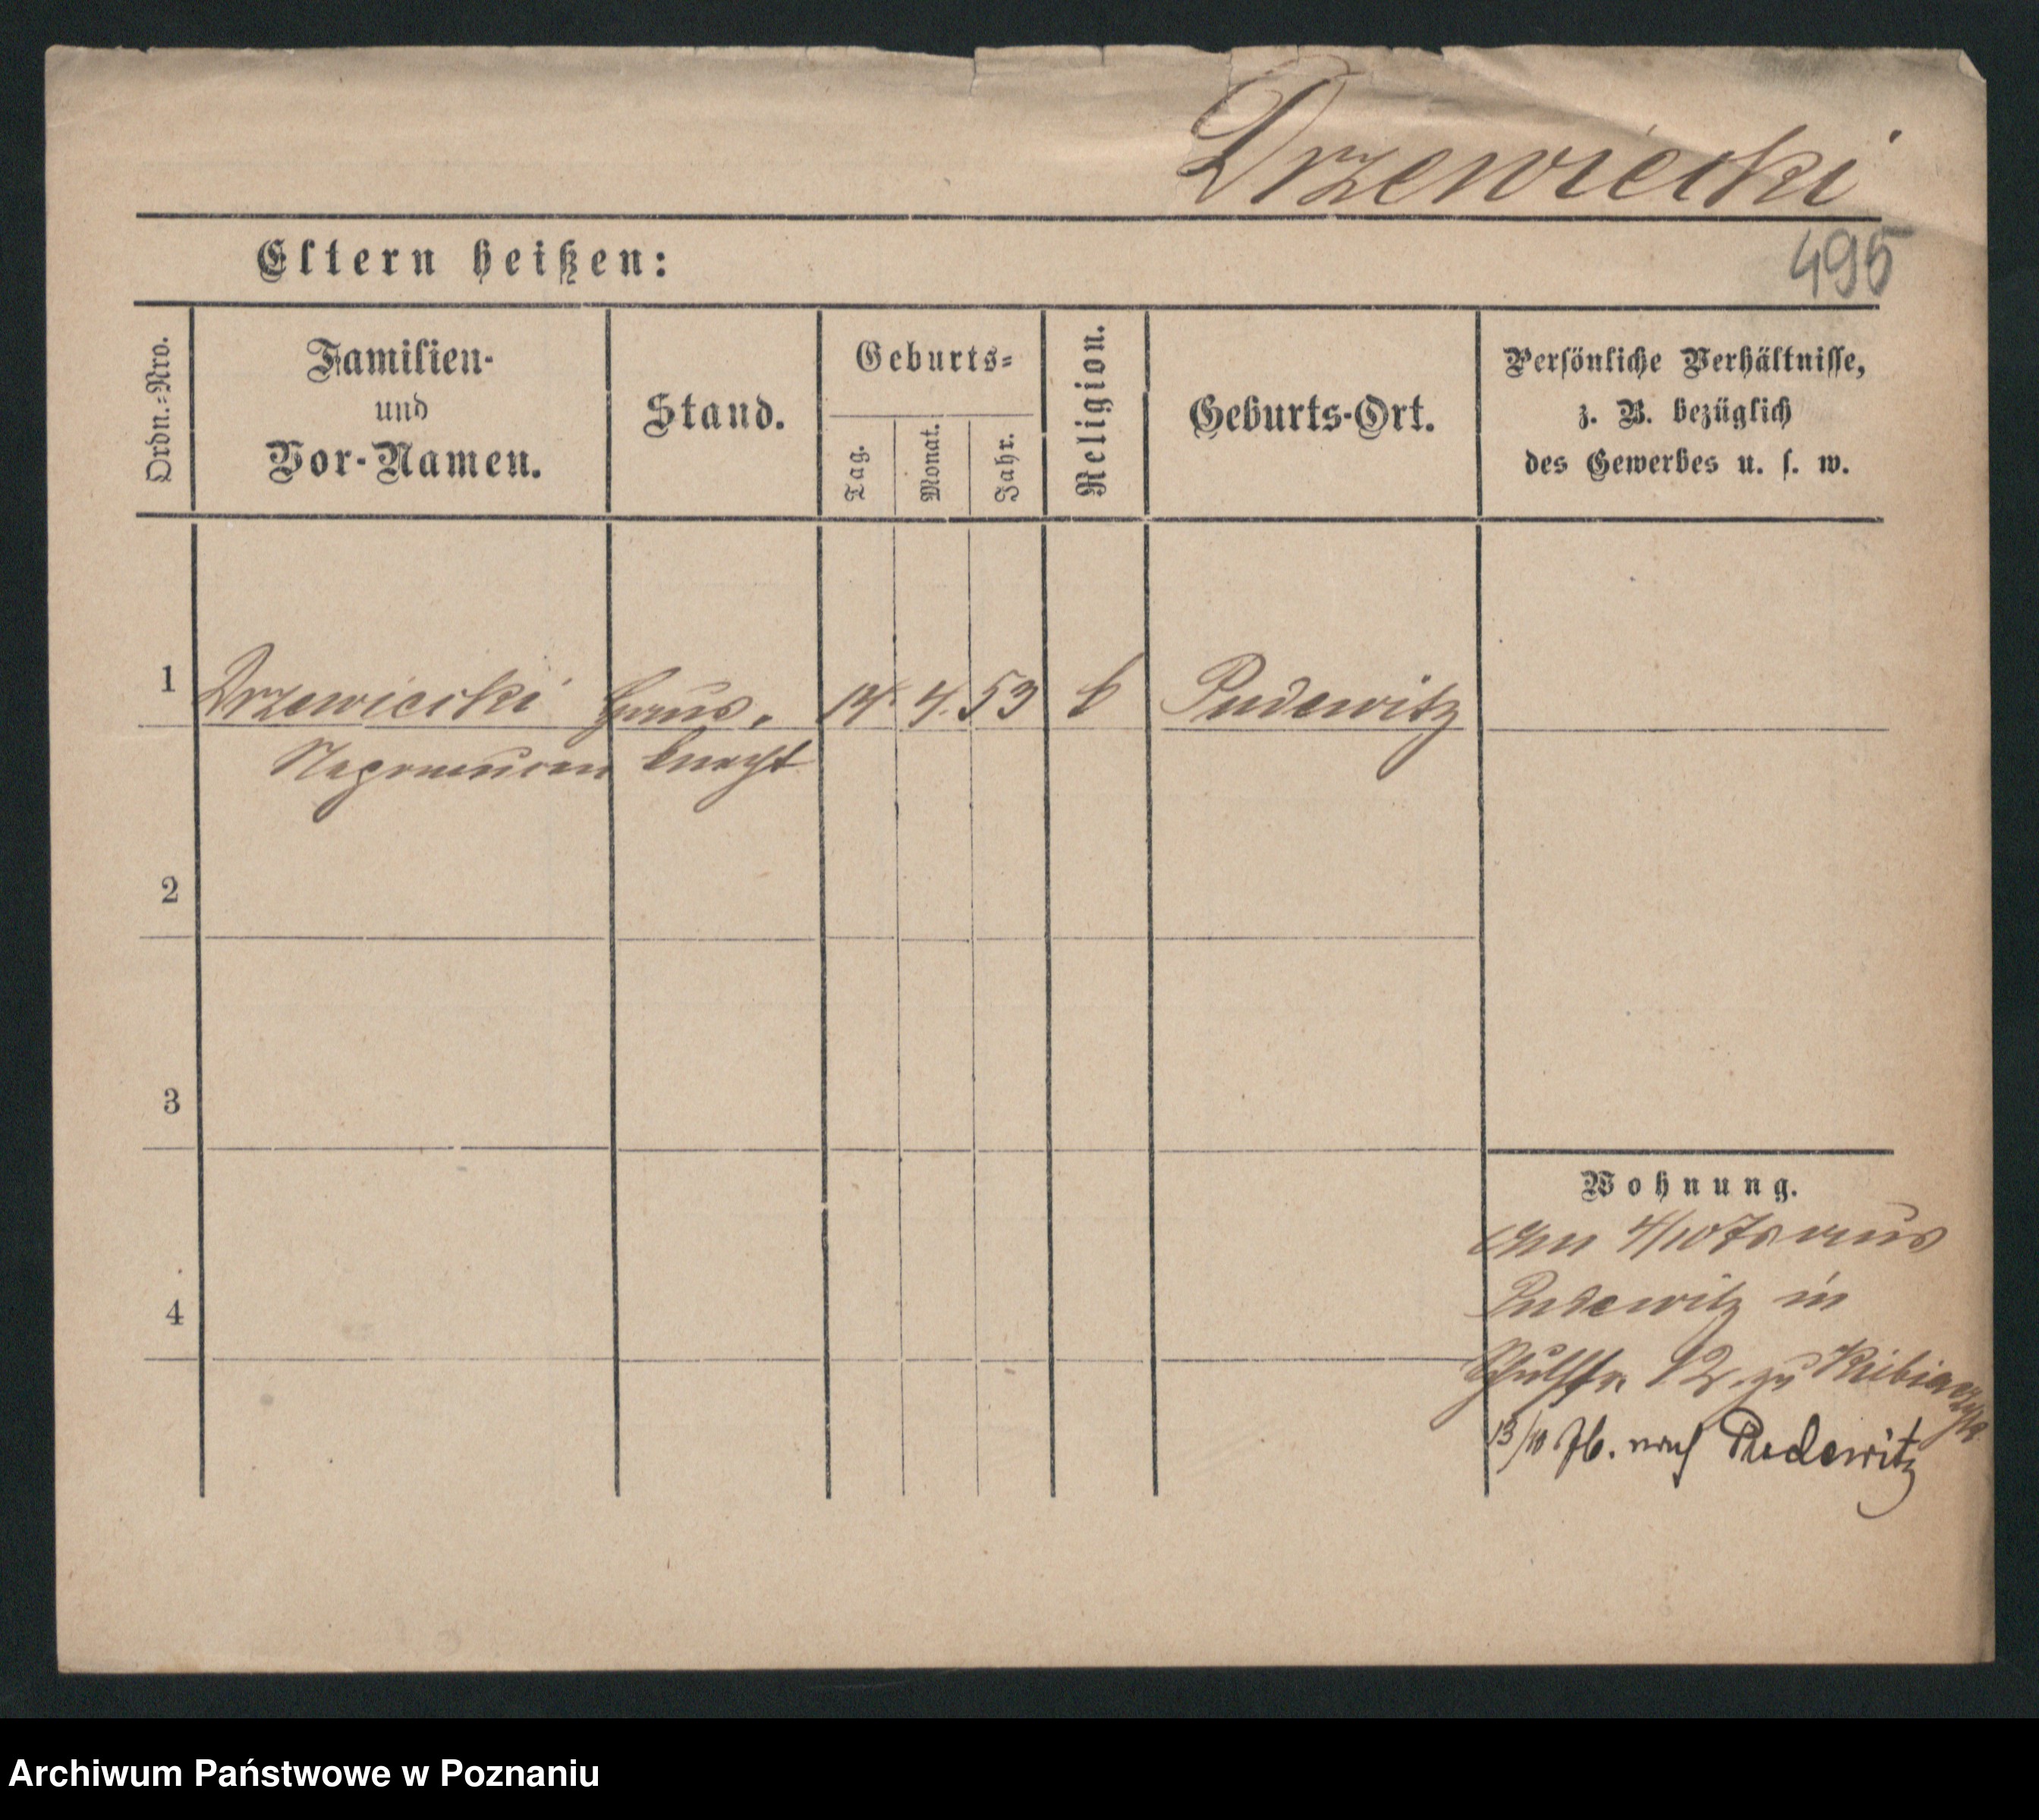 Drzewiecki
495
Eltern heißen:
Ordn.-Nro.
Familien-
und
Vor-Namen.
Stand.
Geburts-
Tag.
Monat.
Jahr.
Religion.
Geburts-Ort.
Persönliche Verhältnisse,
z. B. bezüglich
des Gewerbes u. s. w.
1 Drzewiecki Haus- 14. 4. 53 k Pudewitz
Nepomucen knecht
2
3
4
Wohnung.
am 4/10 75 aus
Pudewitz in
Schulstr. 12. zu
13/10 76. nach Pudewitz
Archiwum Państwowe w Poznaniu